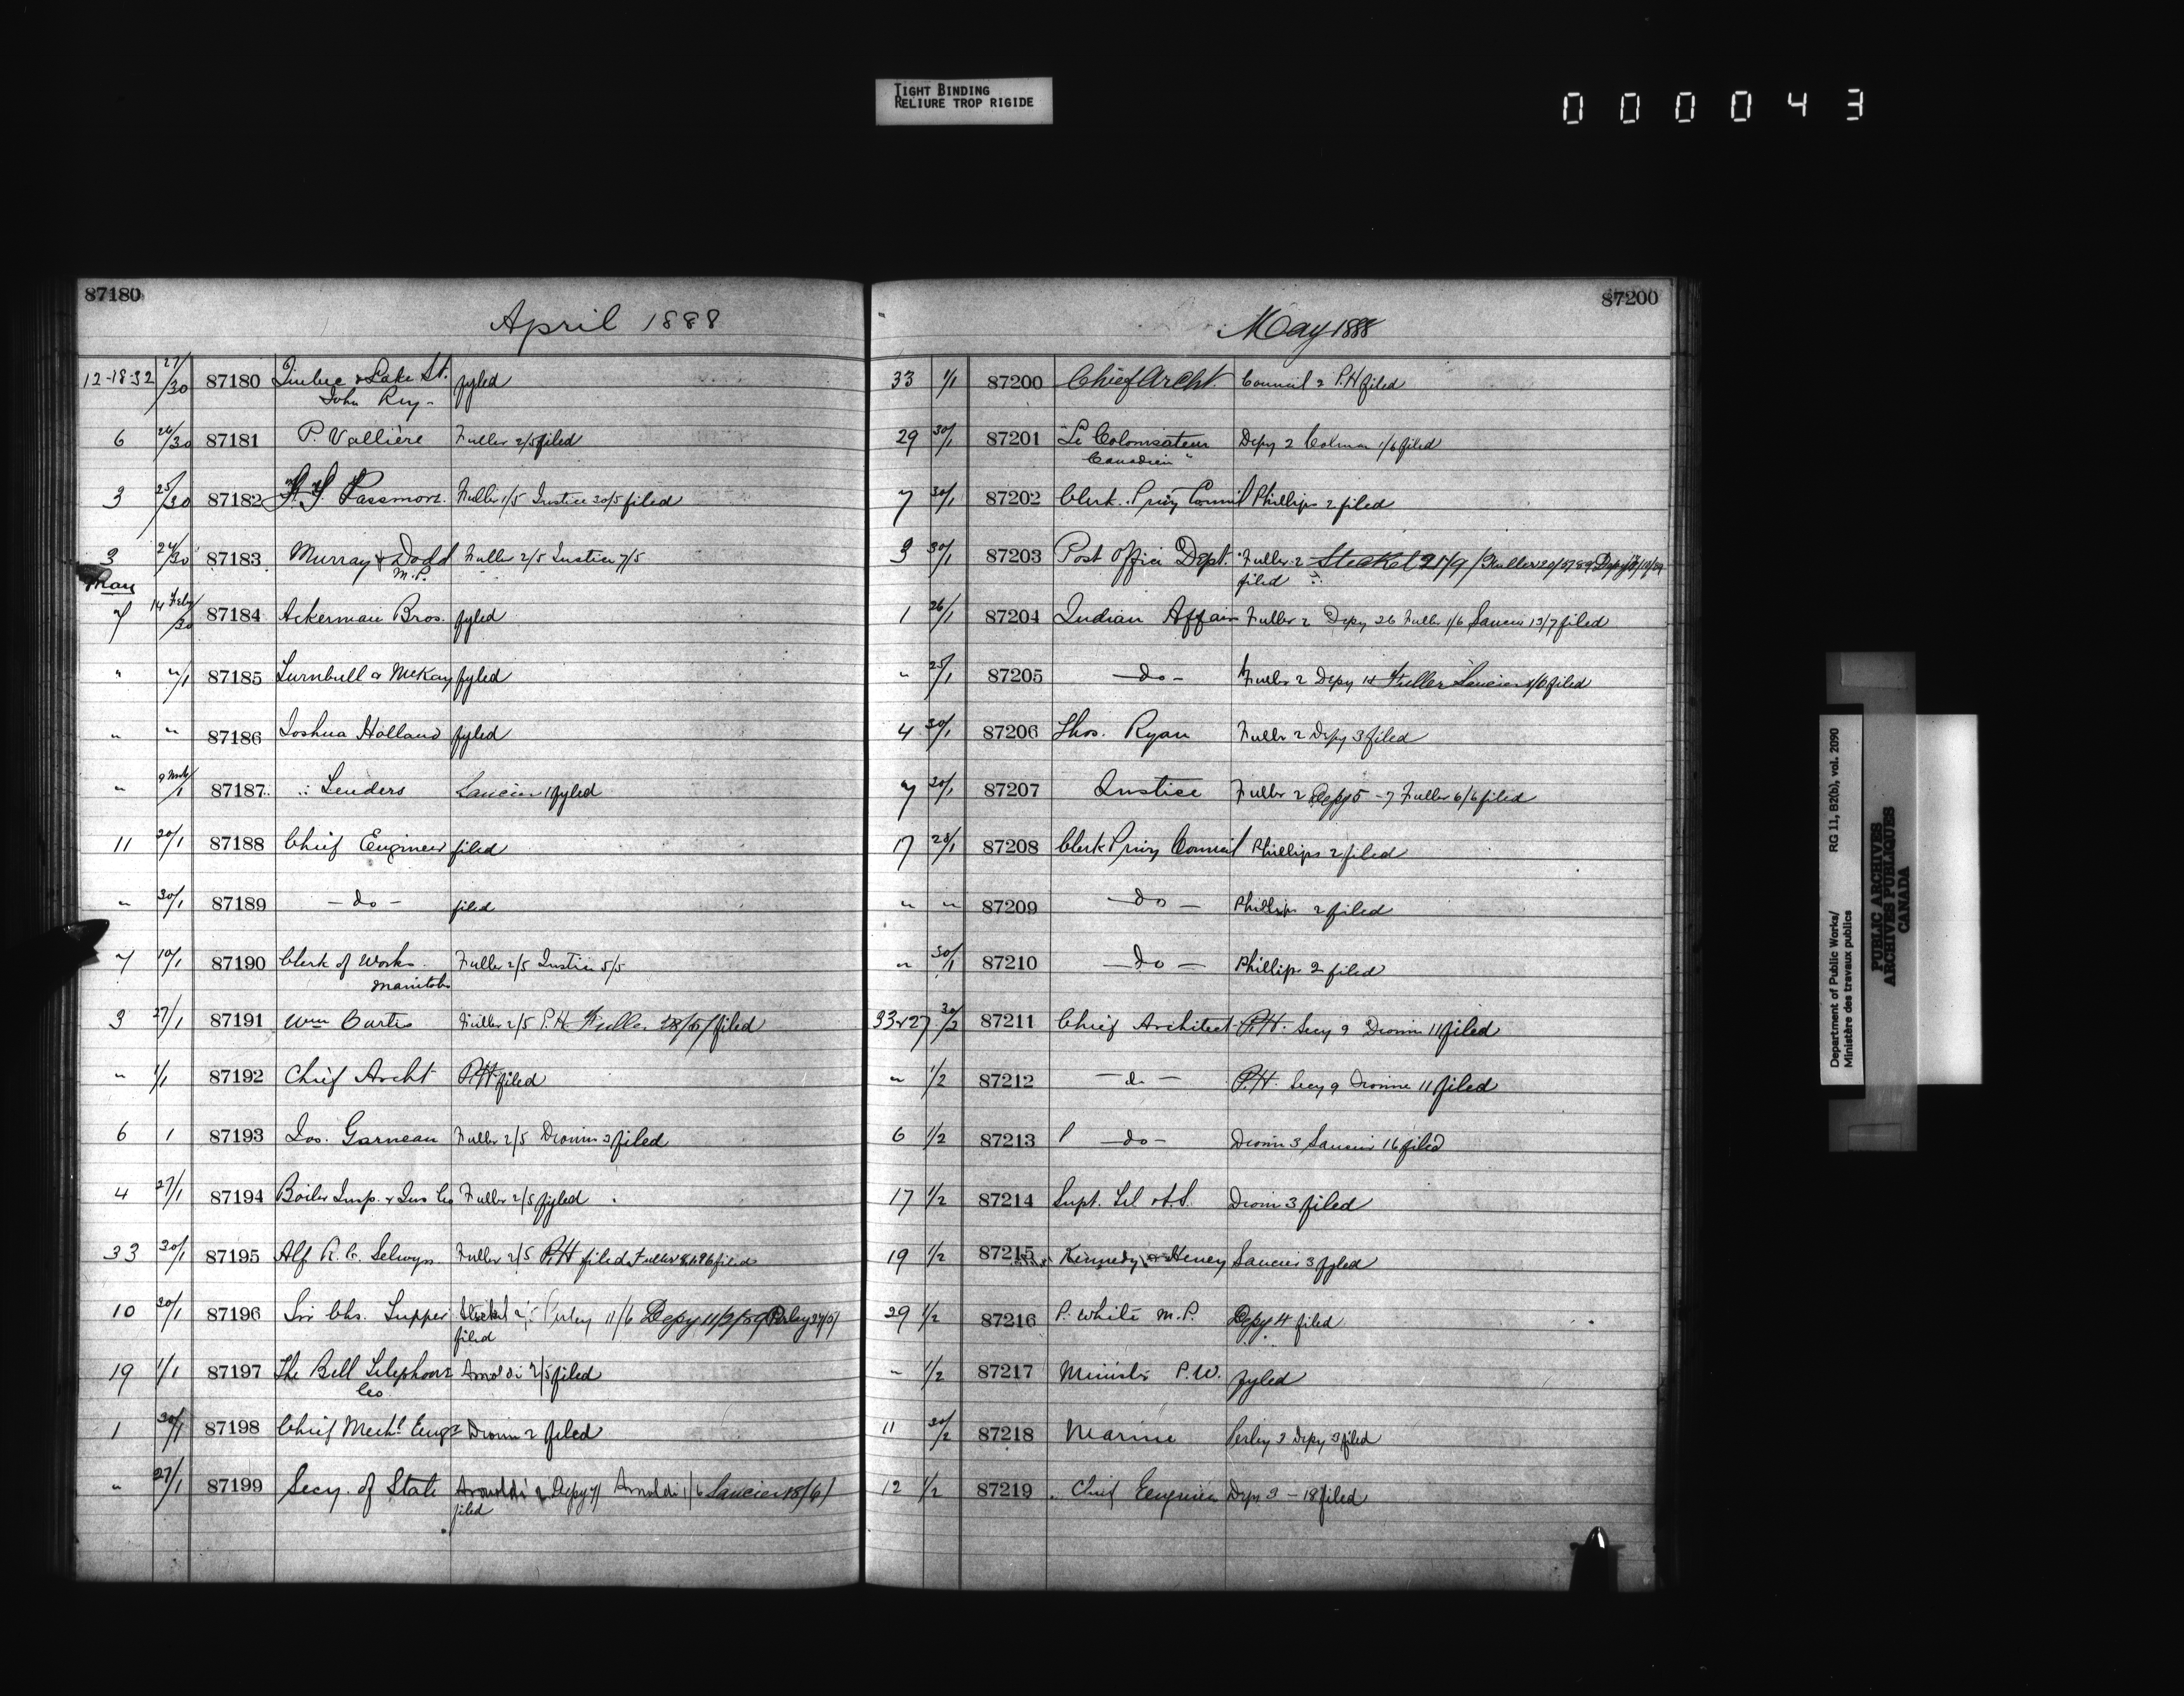 TIGHT BINDING
RELIURE TROP RIGIDE
0 0 0 0 4 3
87180
April 1888
12-18-32 27/30 87180 Quebec & Lake St. fyled
John Ry-
6 26/30 87181 P. Vallière Fuller 2/5 filed
3 25/30 87182 Passmore. Fuller 1/5 Justice 30/5 filed
3 24/30 87183 Murray & Dodd Fuller 2/5 Justice 7/5
M.P.
May
7 14 Feby/30 87184 Ackerman Bros. fyled
" "/1 87185 Turnbull & McKay fyled
" " 87186 Joshua Holland fyled
" 9 Mch/1 87187 Tenders Saucier 1 fyled
11 20/1 87188 Chief Engineer filed
" 30/1 87189 - do - filed
7 10/1 87190 Clerk of Works Fuller 2/5 Justice 5/5
Manitoba
3 27/1 87191 Wm Curtis Fuller 2/5 P.H. Fuller filed
" 1/1 87192 Chief Archt P.H filed
6 1 87193 Jos. Garneau Fuller 2/5 Dionne 3 filed
4 27/1 87194 Boiler Insp. & Ins Co Fuller 2/5 fyled
33 30/1 87195 Alf R. C. Selwyn Fuller 2/5 P.H filed Fuller filed
10 30/1 87196 Sir Chs. Tupper Steckel 2 Perley 11/6 Depy 11/2/89 Perley
filed
19 1/1 87197 The Bell Telephone Arnoldi 2/5 filed
Co.
1 30/1 87198 Chief Mechl Engr Dionne 2 filed
" 27/1 87199 Secy. of State Arnoldi 2 Depy Arnoldi 1/6 Saucier 18/6/
filed
87200
May 1888
33 1/1 87200 Chief Archt. Council 2 P.H filed
29 30/1 87201 "Le Colonisateur Depy 2 Colman 1/6 filed
Canadien"
7 30/1 87202 Clerk Privy Council Phillips 2 filed
3 30/1 87203 Post Office Dept. Fuller 2 Steckel 21/9/ Fuller
filed
1 26/1 87204 Indian Affairs Fuller 2 Depy 26 Fuller 1/6 Saucier 13/7 filed
" 25/1 87205 - do - Fuller 2 Depy 14 Fuller Saucier filed
4 30/1 87206 Thos. Ryan Fuller 2 Depy 3 filed
7 30/1 87207 Justice Fuller 2 Depy 5 - 7 Fuller 6/6 filed
17 28/1 87208 Clerk Privy Council Phillips 2 filed
" " 87209 - do - Phillips 2 filed
" 30/1 87210 - do - Phillips 2 filed
33&27 30/2 87211 Chief Architect P.H. Secy 9 Dionne 11 filed
" 1/2 87212 - do - P.H. Secy 9 Dionne 11 filed
6 1/2 87213 - do - Dionne 3 Saucier 16 filed
17 1/2 87214 Supt. Tel. & S. Dionne 3 filed
19 1/2 87215 Kennedy Heney Saucier 3 fyled
29 1/2 87216 P. White M.P. Depy 4 filed
" 1/2 87217 Minister P.W. fyled
11 30/2 87218 Marine Perley 3 Depy 3 filed
12 1/2 87219 Chief Engineer Depy 3 - 18 filed
Department of Public Works/ RG 11, B2(b), vol. 2090
Ministère des travaux publics
PUBLIC ARCHIVES
ARCHIVES PUBLIQUES
CANADA